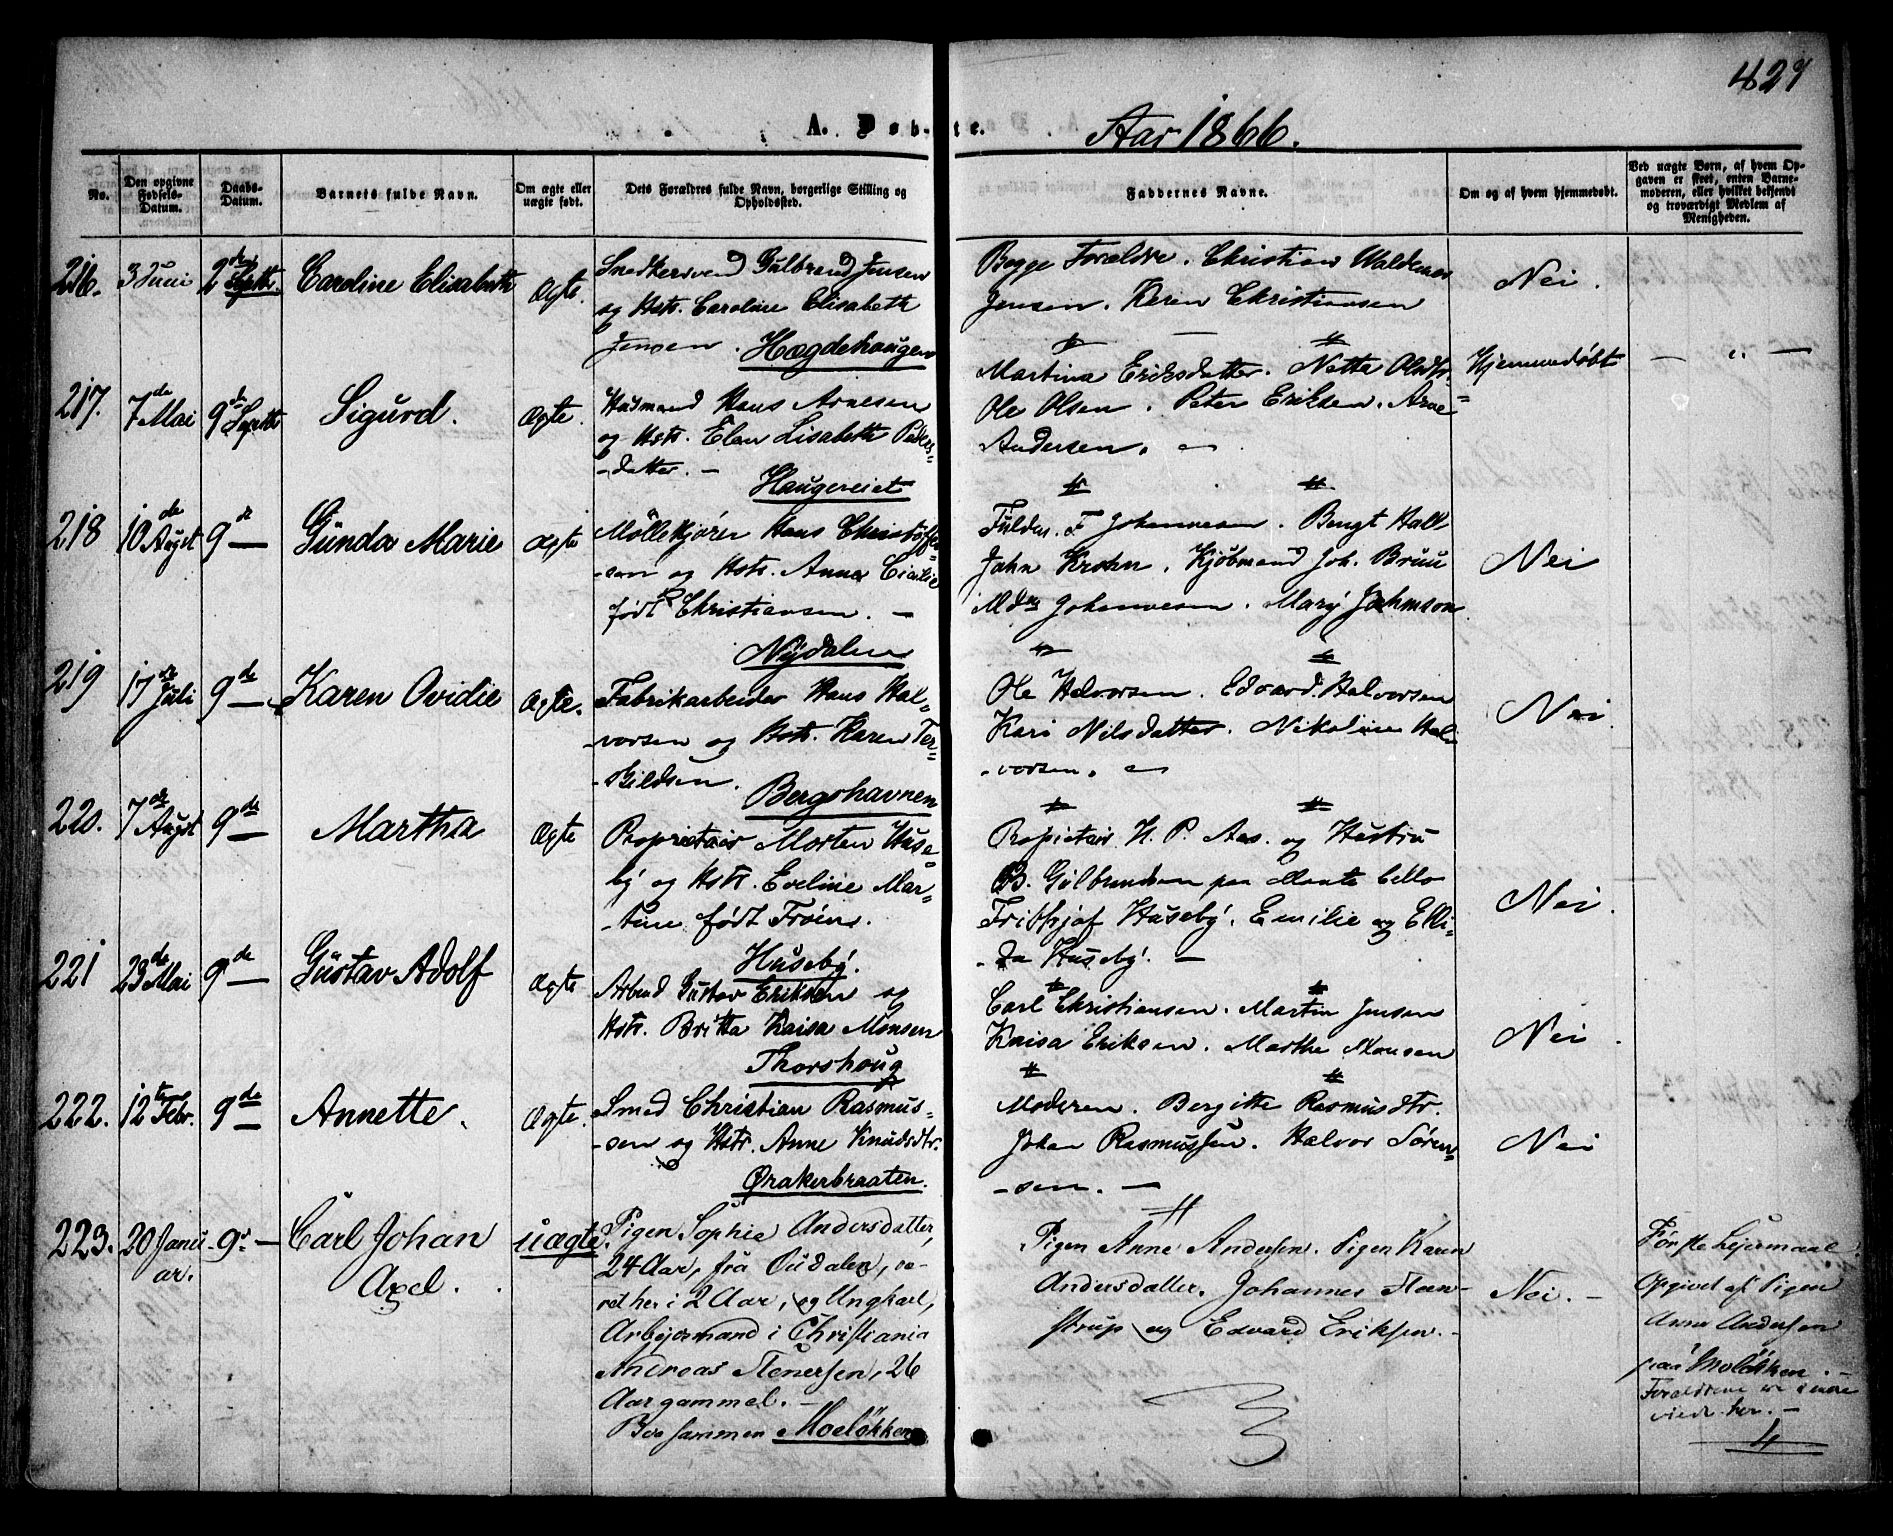 427
A. Døbte.
Aar 1866.
No.
Den opgivne Fødsels-Datum.
Daabs-Datum.
Barnets fulde Navn.
Om ægte eller uægte født.
Dets Forældres fulde Navn, borgerlige Stilling og Opholdssted.
Faddernes Navne.
Om og af hvem hjemmedøbt.
Ved uægte Børn, af hvem Opgaven er skeet, enten Barnemoderen, eller hvilket bekjendt og troværdigt Medlem af Menigheden.
216.
3 Juni
2den Septbr.
Caroline Elisabeth
Ægte.
Snedkersvend Gulbrand Jensen
og Hstr. Caroline Elisabeth
Jensen.
Hægdehaugen
Begge Forældre. Christian Waldemar
Jensen. Karen Christiansen
Nei.
217.
7de Mai
9de Septbr
Sigurd.
Ægte.
Husmand Hans Arnesen
og Hstr. Elen Lisabeth Peders-
-datter. -
Haugereiet
Martina Eriksdatter. Netta Olsdtr.
Ole Olsen. Peter Eriksen. Arne
Andersen.
Hjemmedøbt
— " —
218
10de Augst
9de —
Gunda Marie
Ægte
Møllekjører Hans Christoffer-
-sen og Hstr. Anna Cicilie
født Christiansen. —
Nydalen
F Johannesen. Bengt Hall
John Krohn. Kjøbmand Joh. Bruu
Mdm Johannesen. Mary Johmson
Nei
219
17de Juli
9de —
Karen Ovidie
Ægte.
Fabrikarbeider Hans Hal-
-vorsen og Hstr. Karen Ter-
-kildsen.
Bergshavnen
Ole Halvorsen. Edvard Halvorsen
Kari Nilsdatter. Nikoline Hal
-vorsen.
Nei.
220.
7de Augst
9de —
Martha
Ægte
Proprietair Morten Huse-
by og Hstr. Eveline Mar-
-tine født Frøin.
Huseby.
Propietair H. P. Aas. og Hustru
B. Gulbrandsen paa Monte bello
Frithjof Huseby. Emilie og Elli-
-da Huseby. —
Nei.
221
23de Mai
9de —
Gustav Adolf
Ægte
Arbmd Gustav Eriksen og
Hstr. Britta Kaisa Monsen
Thorshoug
Carl Christiansen. Martin Jensen
Kaisa Eriksen. Marthe Monsen
Nei.
222.
12te Febr.
9de —
Annette.
Ægte.
Smed Christian Rasmus-
-sen og Hstr. Anne Knudsdtr.
Ørakerbraaten.
Moderen. Bergitte Rasmusdtr.
Johan Rasmussen. Halvor Søren-
-sen. —
Nei
223.
20 Janu
ar.
9de —
Carl Johan
Axel.
uægte.
Pigen Sophie Andersdatter,
24 Aar, fra Oudalen, væ-
ret her i 2 Aar, og Ungkarl,
Arbejdsmand i Christiania
Andreas Stenersen, 26
Aar gammel. —
Boe sammen Moeløkken
Pigen Anne Andersen. Pigen Karen
Andersdatter. Johannes Steen-
strup og Edvard Eriksen. —
Nei. —
Første Lejermaal.
Opgivet af Pigen
Anne Andersen
paa Moeløkken. —
Forældrene ere senere
viede her. —
4